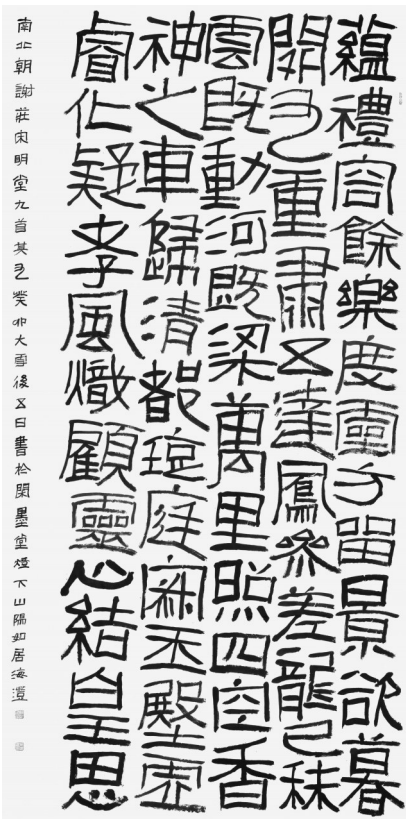 蘊禮容餘樂度靈方留景欲暮
開九重肅五達鳳參差龍已秣
雲既動河既梁萬里照四空香
神之車歸清都琁庭寂玉殿虛
睿化疑孝風熾顧靈心結皇思
南北朝謝莊宋明堂九首其九癸卯大雪後五日書於墨堂燈下山居海澧